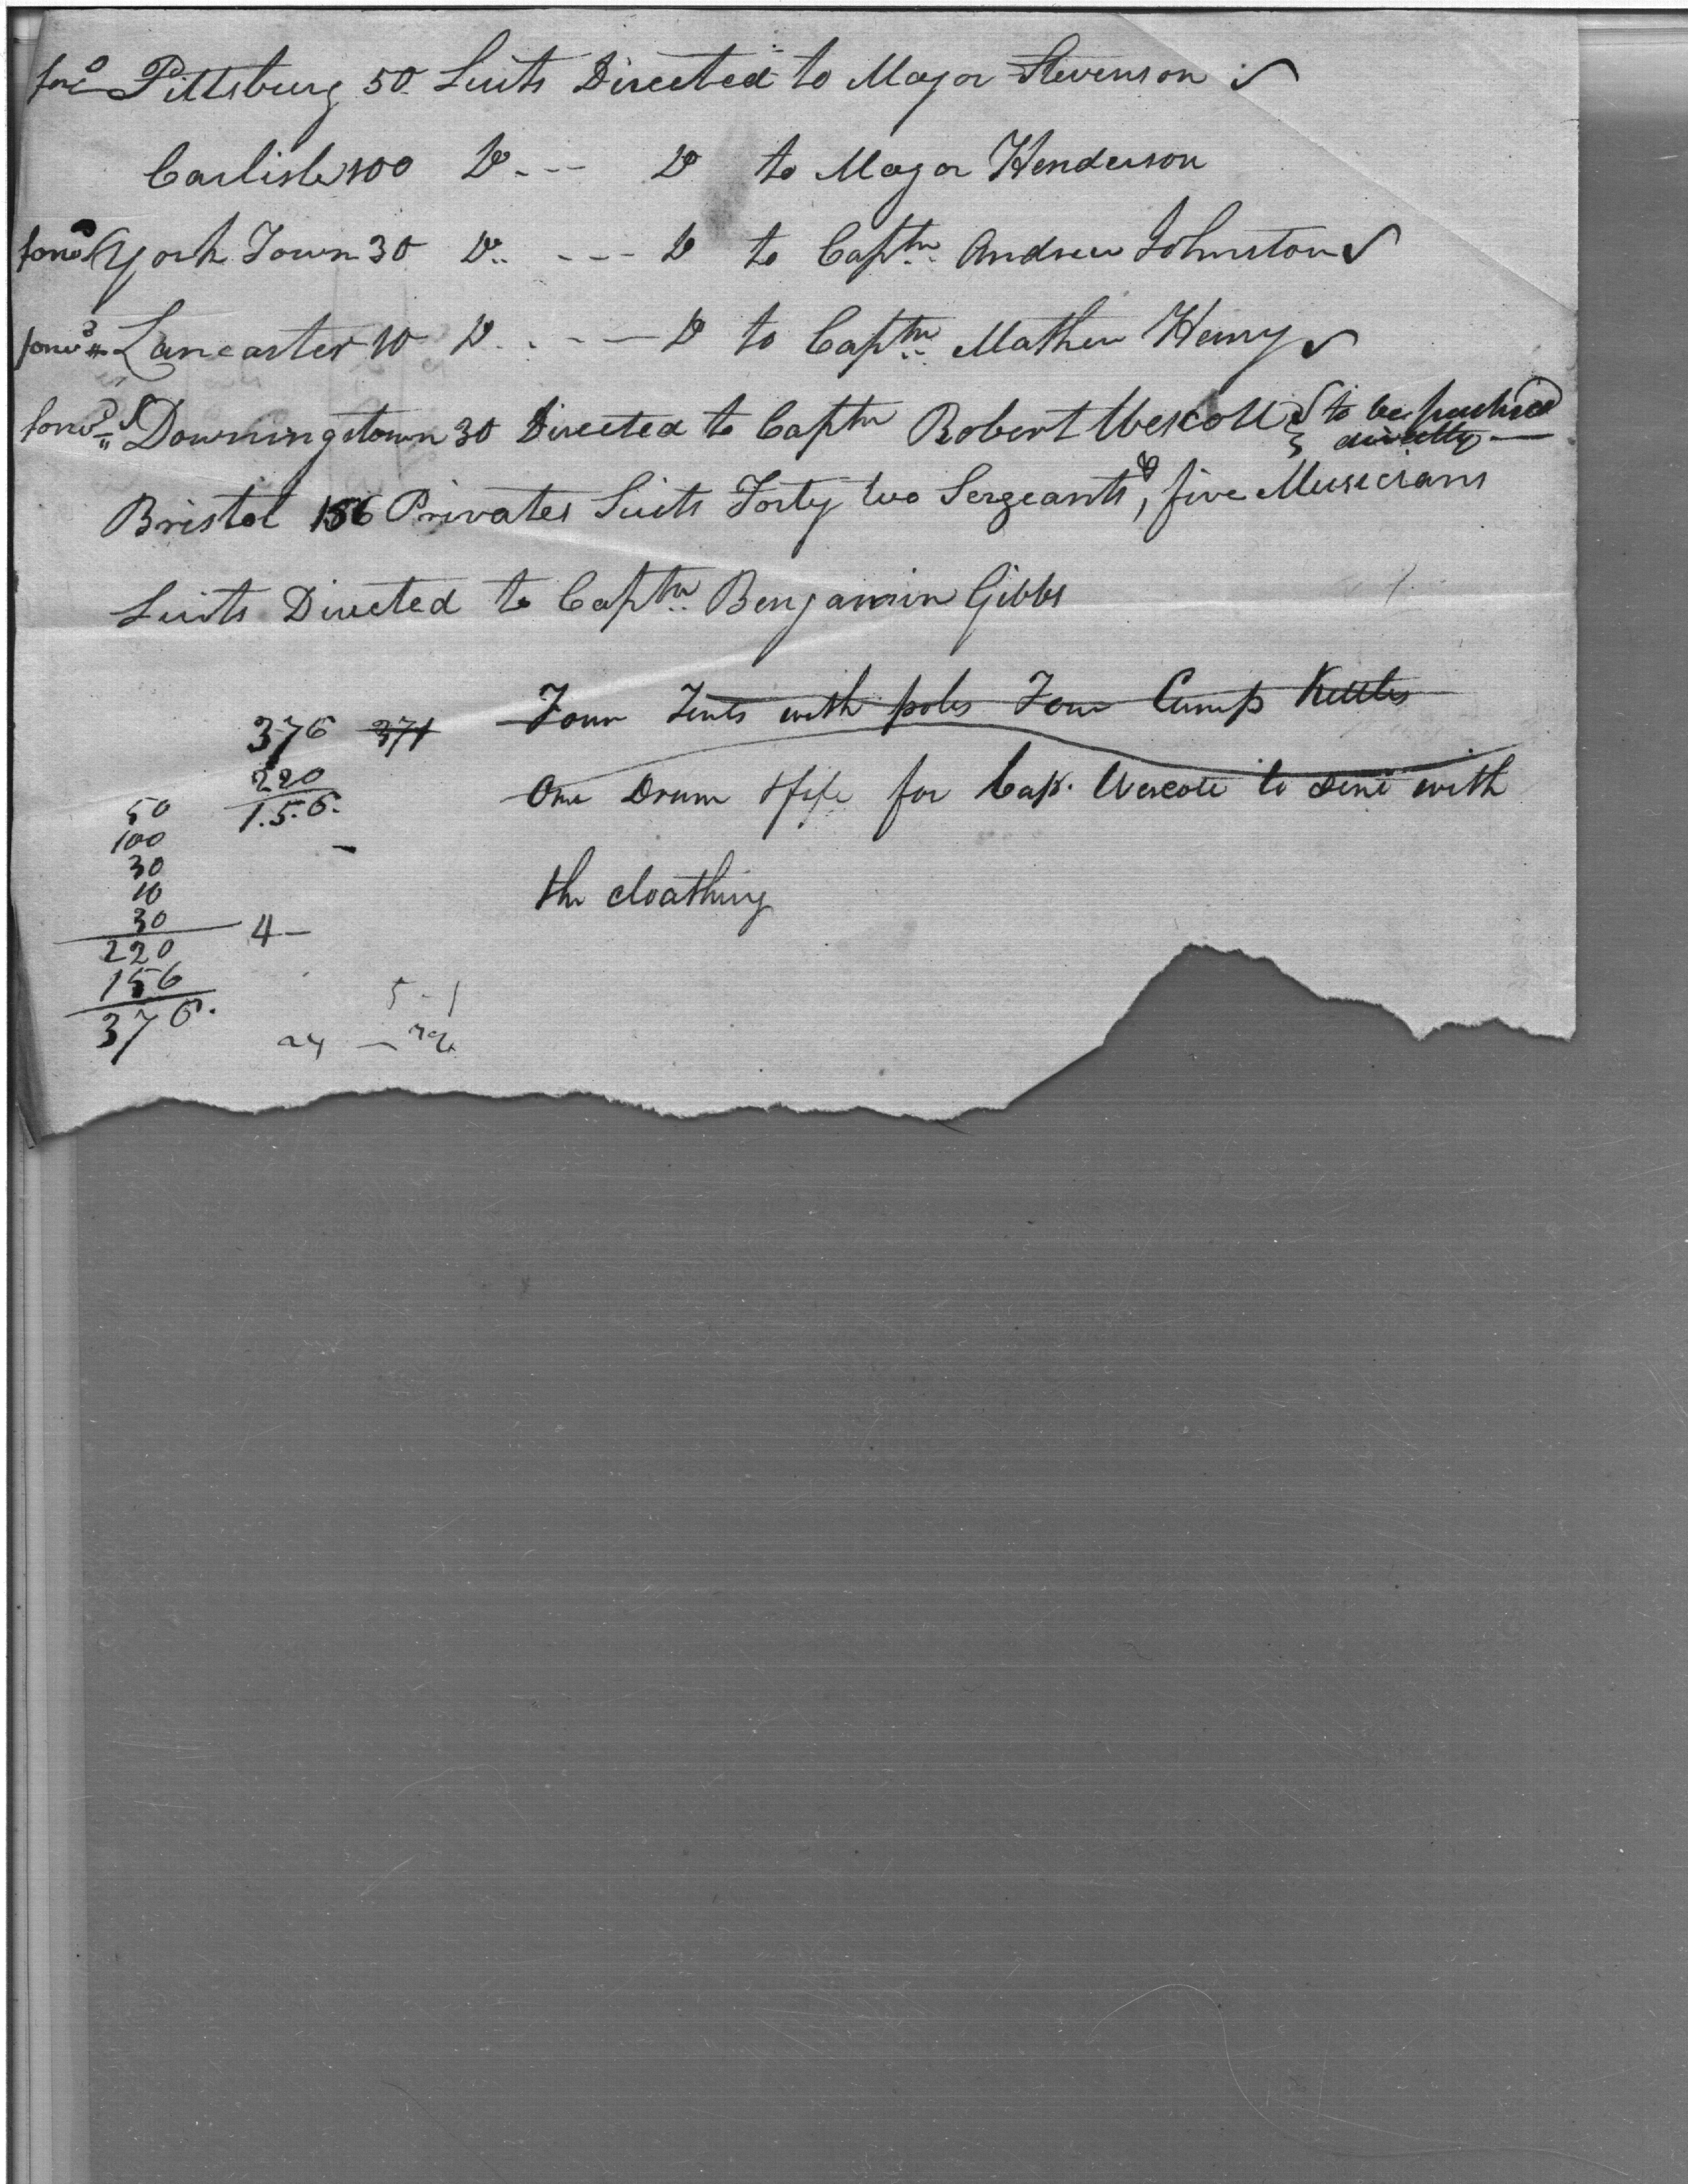 forw'd Pittsburg 50 Suits Directed to Major Stevenson
Carlisle 100 Do --- Do to Major Henderson
forw'd York Town 30 Do --- Do to Captn Andrew Johnston
forw'd Lancaster 10 Do --- Do to Captn Mathew Henry
forw'd Downingstown 30 Directed to Captn Robert Wescott to be packed
directly
Bristol 156 Privates Suits Forty two Sergeants & five Musicians
Suits Directed to Captn Benjamin Gibbs
Four Tents with poles Four Camp Kettles
One Drum & fife for Cap. Wescott to send with
the cloathing
376 371
220
1.5.6.
50
100
30
10
30
220
156
376.
4-